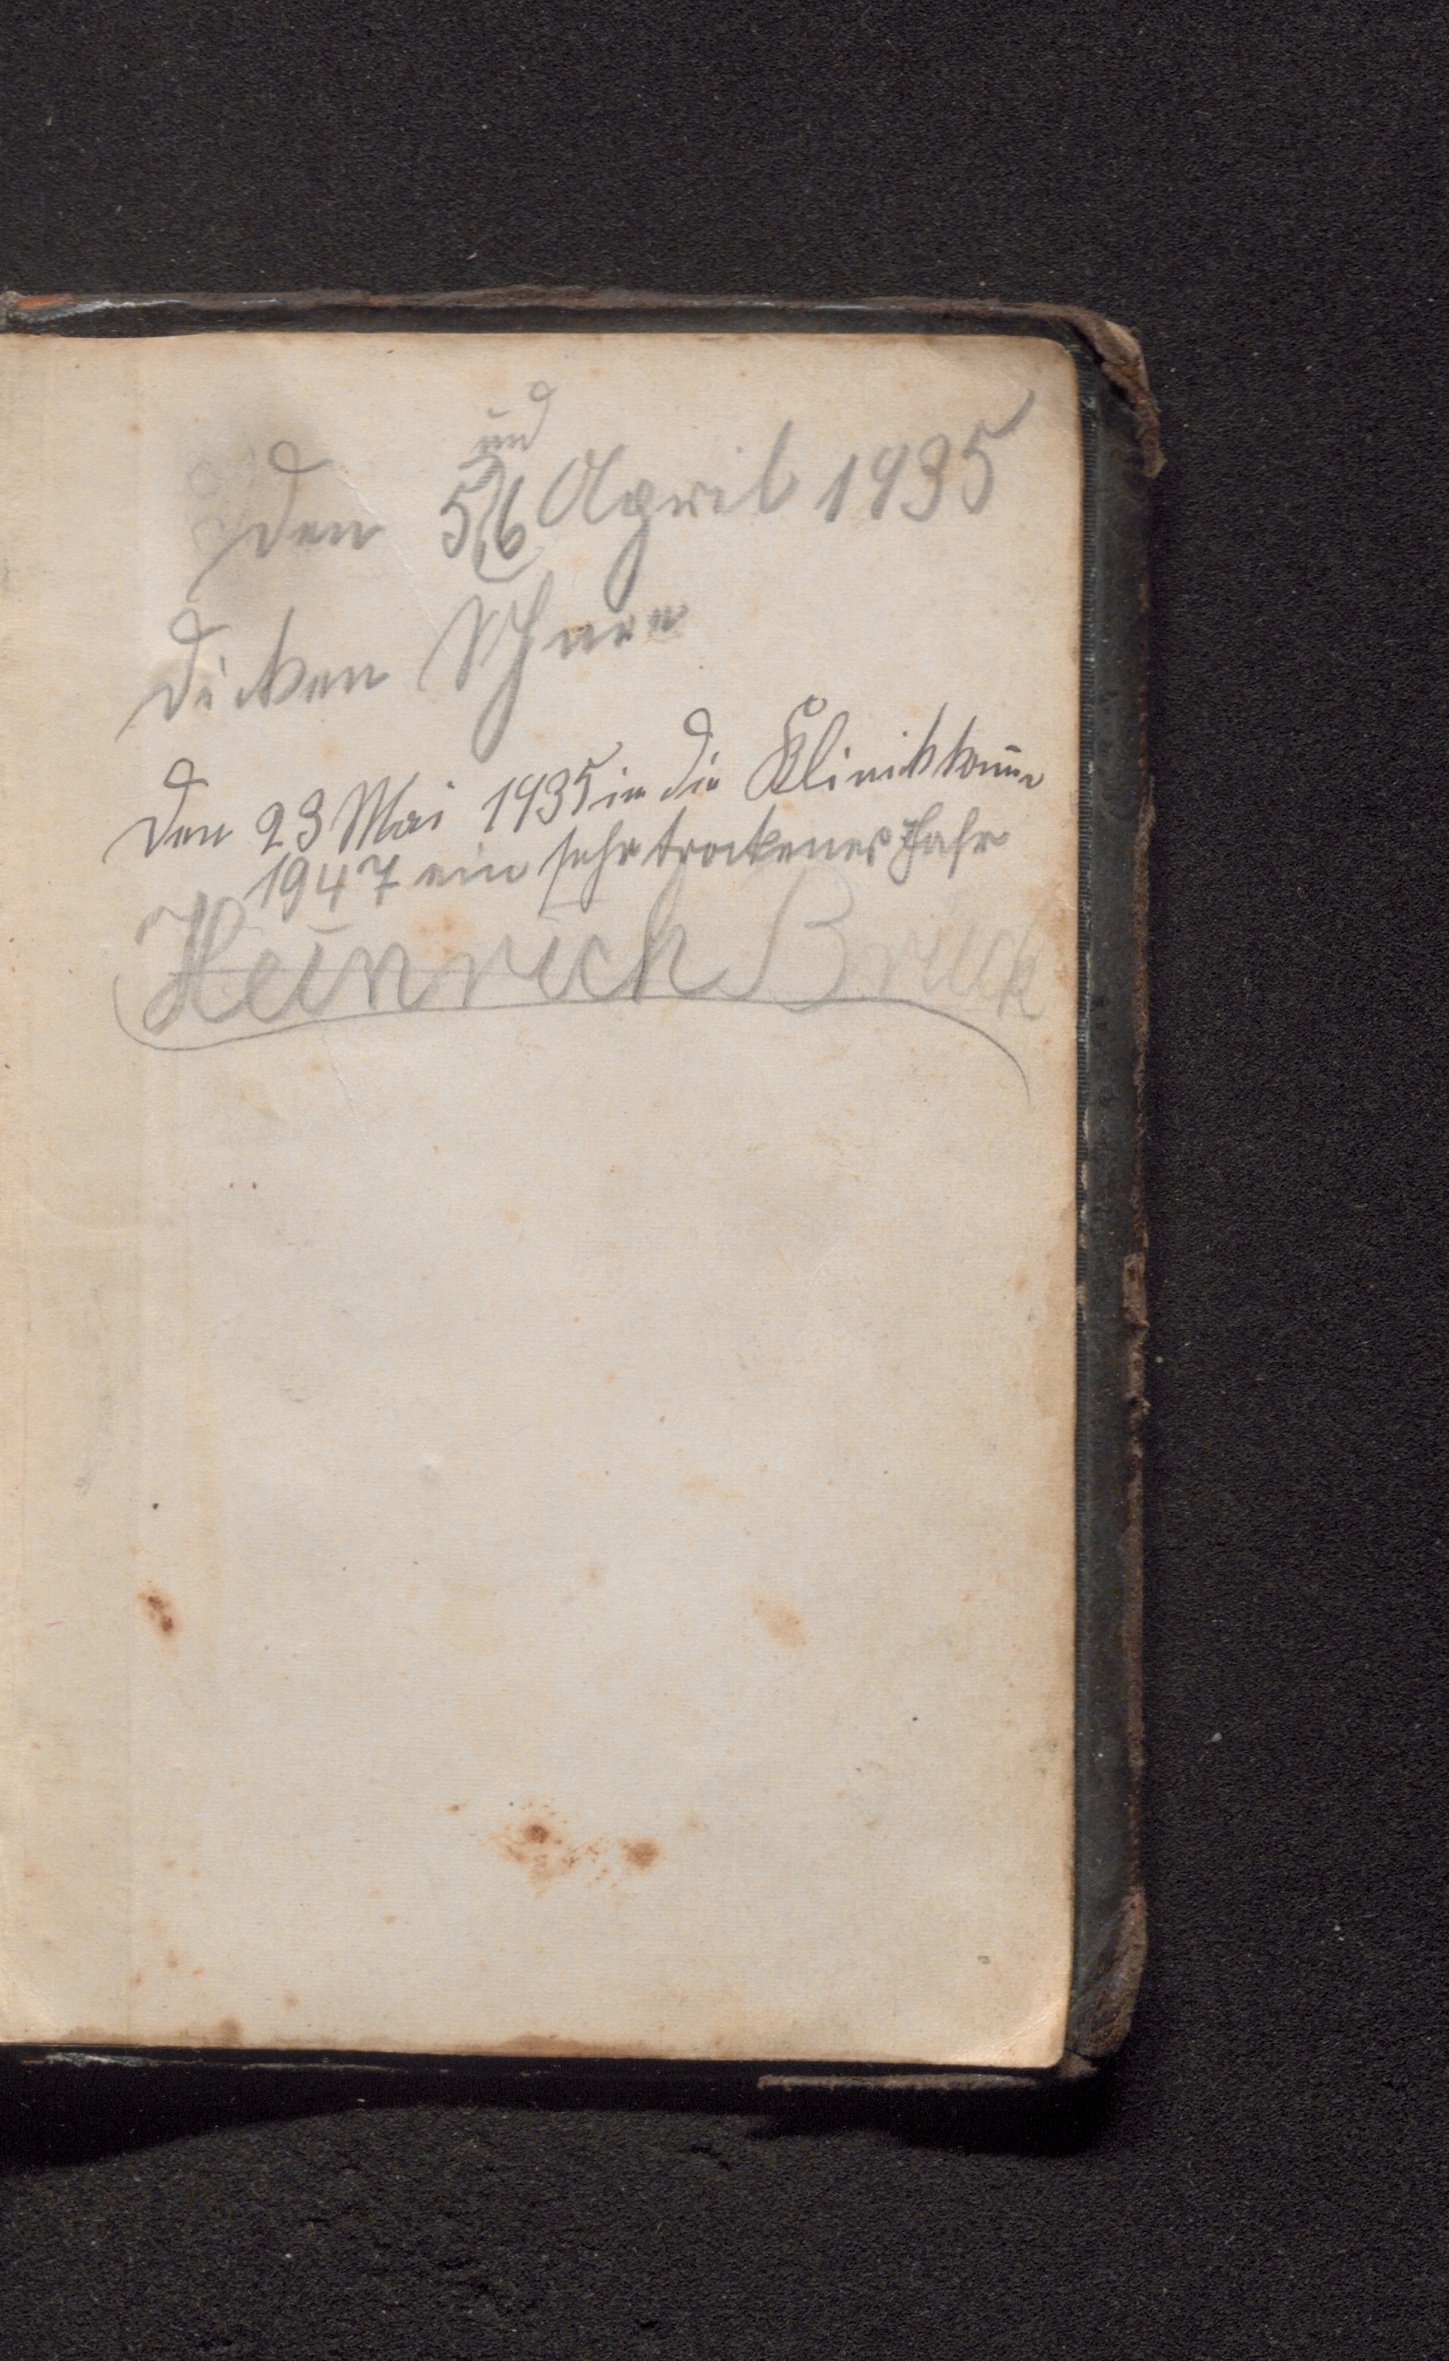 den 5 und 6 April 1935
dicken Schnee
den 23 Mai 1935 in die Klinik
1947 ein sehr trockenes Jahr
Heinrich Brück